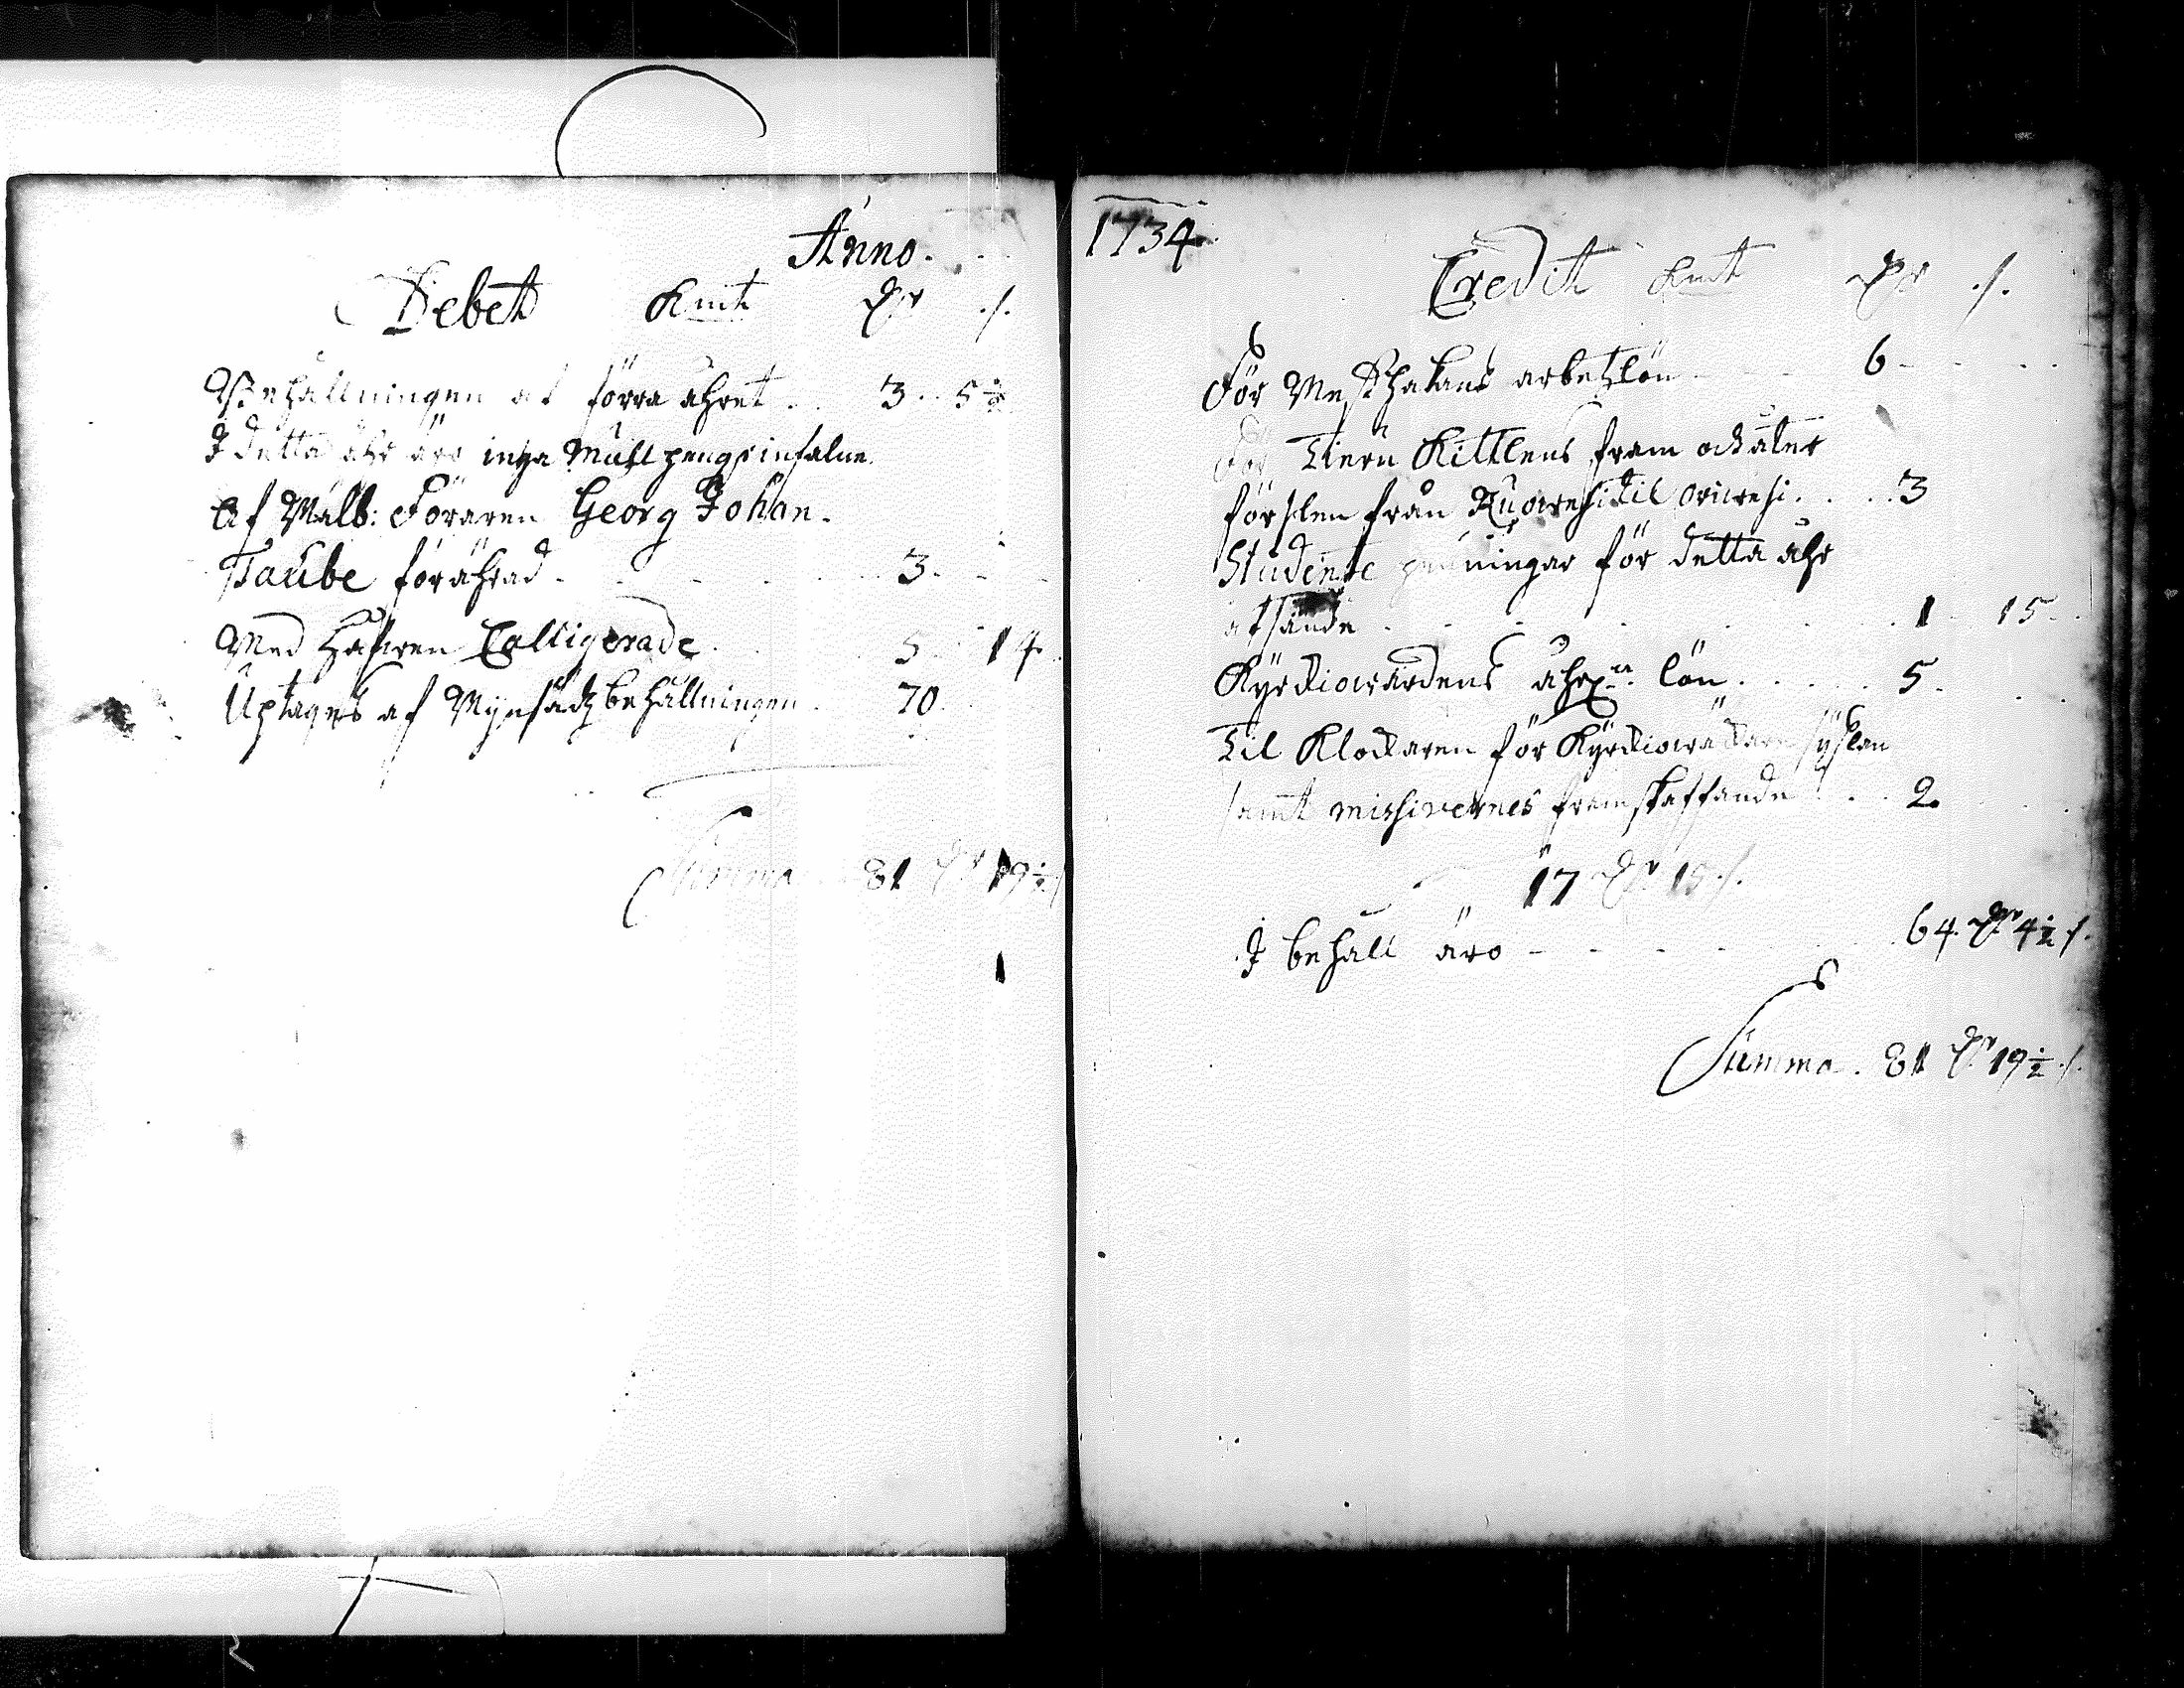 Anno 1734
Debet Kmt Dr ./.
Behållningen af förra åhret . . 3 . . 5 ½
I detta åhr äro inga Muhl penger infalne.
Af Wälb: Föraren Georg Johan
Taube förährad . . . . 3.
Med Håfwen Colligerade . . . 5 . 14.
Uptages af behållningen . 70.
Summa . . 81 Dr 19 ½ ./.
Credit Kmt Dr ./.
För Messhakans arbetzlön . . . 6
För Tieru Kittlens fram och åter
förslen från til . . . 3
Studente penningar för detta åhr
afsände . . . . 1 . 15 .
Kyrckiowärdens lön . . . . 5 .
Til Klockaren för sysslan
samt missivernes framskaffande . . . 2.
17 Dr 15 ./.
I behåll äro - - - - 64. Dr 4 ½ ./.
Summa . 81 Dr 19 ½ ./.